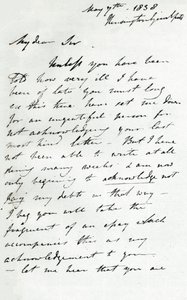 May 7th. 1838
Kensington Gravel Pits
My dear Sir,
Unless you have been
told how very ill I have
been of late you must long
ere this time have set me down
for an ungrateful person for
not acknowledging your last
most kind letter. But I have
not been able to write at all
during many weeks & am now
only beginning to acknowledge not
pay my debts in that way —
I beg you will take the
fragment of an essay which
accompanies this as my
acknowledgement to you —
let me hear that you are